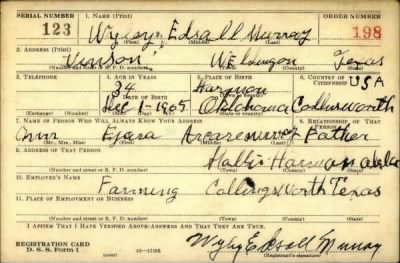 SERIAL NUMBER 1. NAME (Print) ORDER NUMBER
123 Wyley Edsall Murray 198
(First) (Middle) (Last)
2. ADDRESS (Print)
Vinson Texas
(Number and street or R. F. D. number) (Town) (County) (State)
3. TELEPHONE 4. AGE IN YEARS 5. PLACE OF BIRTH 6. COUNTRY OF CITIZENSHIP
34 Harmon USA
DATE OF BIRTH (Town or county)
Dec 1-1905 Oklahoma Collingsworth
(Exchange) (Number) (Mo.) (Day) (Yr.) (State or country)
7. NAME OF PERSON WHO WILL ALWAYS KNOW YOUR ADDRESS 8. RELATIONSHIP OF THAT PERSON
Murray Father
(Mr., Mrs., Miss) (First) (Middle) (Last)
9. ADDRESS OF THAT PERSON
Hollis Harmon
(Number and street or R. F. D. number) (Town) (County) (State)
10. EMPLOYER'S NAME
Farming Collingsworth Texas
11. PLACE OF EMPLOYMENT OR BUSINESS
(Number and street or R. F. D. number) (Town) (County) (State)
I AFFIRM THAT I HAVE VERIFIED ABOVE ANSWERS AND THAT THEY ARE TRUE.
REGISTRATION CARD
D. S. S. Form 1 16—17105 Wyley Edsall Murray
(Registrant's signature)